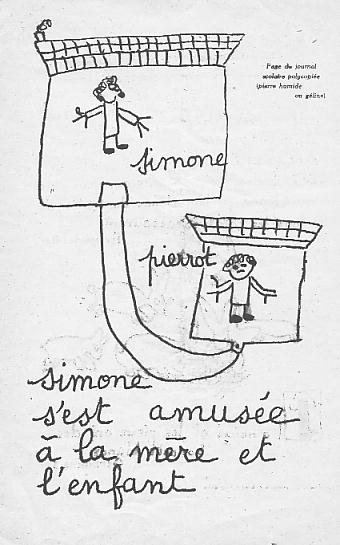 Page du journal
scolaire polycopiée
(pierre humide
ou géline)
simone
pierrot
simone
s'est amusée
à la mère et
l'enfant